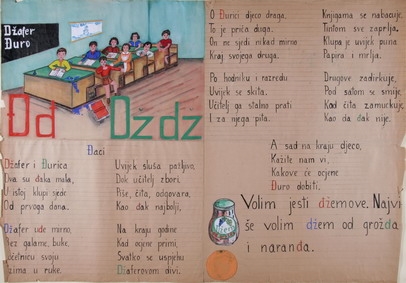 Džafer
Đuro
Đđ Dždž
Đaci
Džafer i Đurica
Dva su đaka mala,
U istoj klupi sjede
Od prvoga dana.
Džafer uđe mirno,
bez galame, buke,
početnicu svoju
uzima u ruke.
Uvijek sluša pažljivo,
Dok učitelj zbori.
Piše, čita, odgovara,
Kao đak najbolji,
Na kraju godine
Kad ocjene primi,
Svatko se uspjehu
Džaferovom divi.
O Đurici djeco draga,
To je priča duga.
On ne sjedi nikad mirno
Kraj svojega druga.
Po hodniku i razredu
Uvijek se skita.
Učitelj ga stalno prati
I za njega pita.
Knjigama se nabacuje,
Tintom sve zaprlja.
Klupa je uvijek puna
Papira i mrlja.
Drugove zadirkuje,
Pod satom se smije,
Kad čita zamuckuje,
Kao da đak nije.
A sad na kraju djeco,
Kažite nam vi,
Kakove će ocjene
Đuro dobiti.
Volim jesti džemove. Najvi
še volim džem od grožđa
i naranđa.